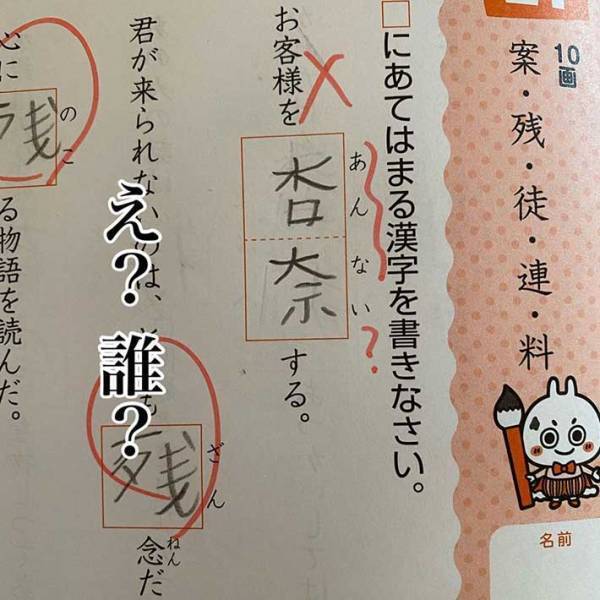 10画
案・残・徒・連・料
名前
□にあてはまる漢字を書きなさい。
お客様を杏奈する。
あんない?
君が来られないのは、とても残念だ
ざん
ねん
心に残る物語を読んだ。
のこ
え?誰?